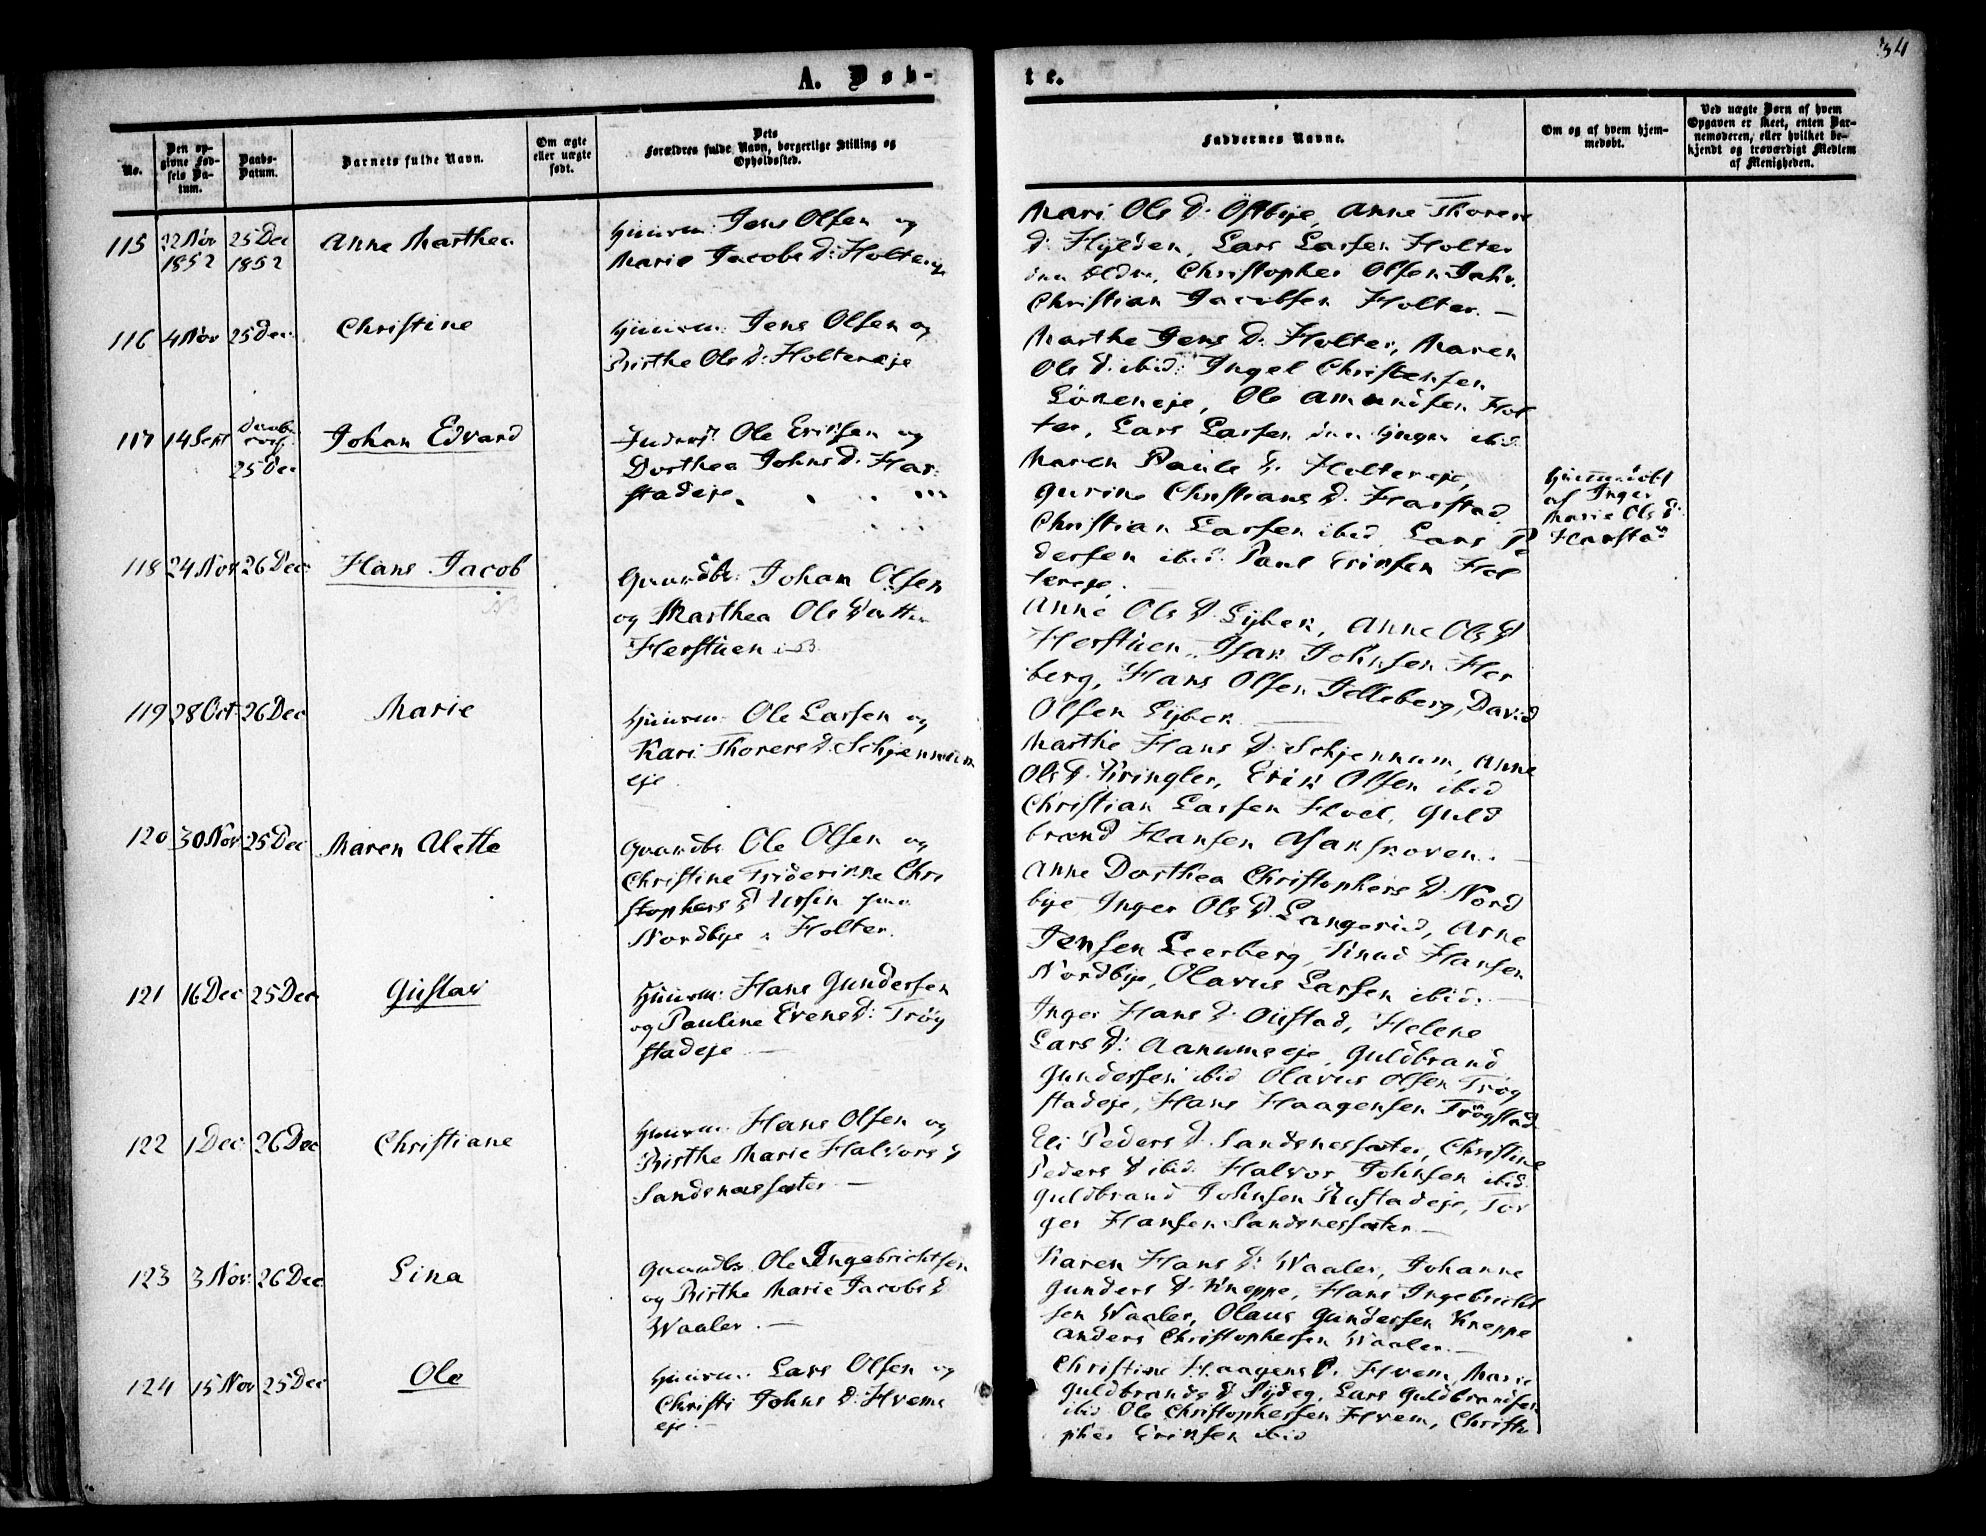 34
A. Døb-
te.
No.
Den op-
givne Fød-
sels Da-
tum.
Daabs-
Datum.
Barnets fulde Navn.
Om ægte
eller uægte
født.
Dets
Forældres fulde Navn, borgerlige Stilling og
Opholdssted.
Faddernes Navne.
Om og af hvem hjem-
medøbt.
Ved uægte Børn af hvem
Opgaven er skeet, enten Bar-
nemoderen, eller hvilket be-
kjendt og troværdigt Medlem
af Menigheden.
115 22 Nov 1852 25 Dec 1852 Anne Marthea
Huusm: Jens Olsen og
Marie Jacobs D: Holtereje
Mari Ols D. Østbye, Anne Thores
D: Hylden, Lars Larsen Holter
den Eldre, Christopher Olsen
Christian Jacobsen Holter. —
116 4 Nov 25 Dec Christine
Huusm: Jens Olsen og
Birthe Ols D: Holtereje
Marthe Jens D. Holter, Maren
Ols D. ibid: Ingel Christensen
Løkeneje, Ole Amundsen Hol
ter, Lars Larsen den Yngre ibid.
117 14 Sept 25 Dec Johan Edvard
Inderst Ole Eriksen og
Dorthea Johns D. Har
stadeje.
Maren Pauls D. Holtereje,
Gurine Christians D. Harstad
Christian Larsen ibid, Lars Pe
dersen ibid. Paul Eriksen Hol
tereje.
Hjemmedøbt
af Inger
Marie Ols D
Harstad
118 24 Nov 26 Dec Hans Jacob
Gaardbr: Johan Olsen
og Marthea Ols Datter
Herstuen
Anne Ols D. Lyben, Anne Ols D
Herstuen, Isak Johnsen Her
berg, Hans Olsen Jelleberg, David
Olsen Lyben —
119 28 Oct 26 Dec Marie
Huusm: Ole Larsen og
Kari Thorers D. Schjennum
eje
Marthe Hans D. Schjennum, Anne
Ols D. Kringler, Erik Olsen ibid
Christian Larsen Hoel, Guld
brand Hansen Asakskoven. —
120 30 Nov 25 Dec Maren Alette
Gaardbr Ole Olsen og
Christine Friderikke Chri
stophers D
Nordbye Holter.
Anne Dorthea Christophers D. Nord
bye Inger Ols D. Langerud, Arne
Jensen Leerberg, Knud Hansen
Nordbye, Olavus Larsen ibid. —
121 16 Dec 25 Dec Gustav
Huusm: Hans Gundersen
og Pauline Evens D: Trøg
stadeje —
Inger Hans D. Oustad, Helene
Lars D: Aanumseje, Guldbrand
Gundersen ibid Olavus Olsen Trøg
stadeje, Hans Haagensen Trøgstad
122 1 Dec 26 Dec Christiane
Huusm: Hans Olsen og
Birthe Marie Halvors D
Sandsnessæter —
Eli Peders D. Sandsnessæter, Christine
Peders D ibid. Halvor Johnsen ibid.
Guldbrand Johnsen Rustadeje, Tor
ger Hansen Sandsnessæter —
123 3 Nov 26 Dec Lina
Gaardbr Ole Ingebrichtsen
og Birthe Marie Jacobs D
Waaler. —
Karen Hans D: Waaler, Johanne
Gunders D. Kneppe, Hans Ingebricht
sen Waaler, Olaus Gundersen Kneppe
Anders Christophersen Waaler. —
124 15 Nov 25 Dec Ole
Huusm: Lars Olsen og
Christi Johns D: Hvems
eje —
Christine Haagens D. Hvem, Marie
Guldbrands D, Lars Guldbrandsen
ibid Ole Christophersen Hvem, Christo
pher Eriksen ibid